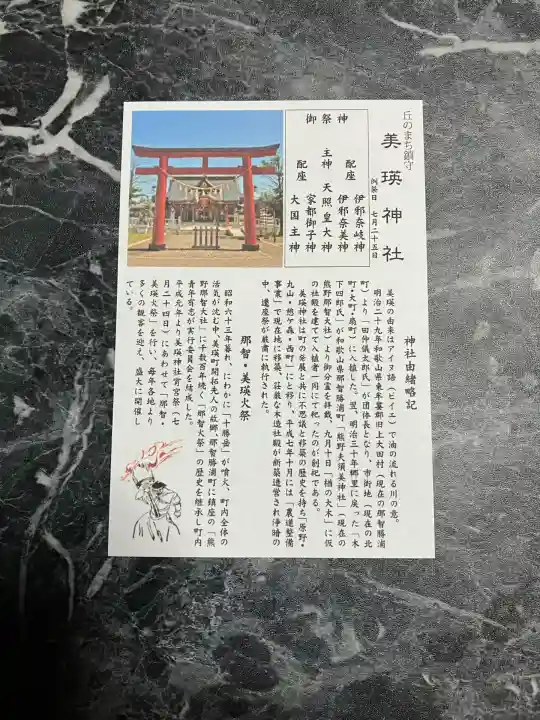 丘のまち鎮守
美瑛神社
例祭日 七月二十五日
御祭神
配座 伊邪奈岐神
伊邪奈美神
主神 天照皇大神
配座 家都御子神
大国主神
神社由緒略記
美瑛の由来はアイヌ語（ピイエ）で油の流れる川の意。
明治二十九年和歌山県東牟婁郡旧上大田村（現在の那智勝浦
町）より「田仲儀太郎氏」が団体長となり、市街地（現在の北
町・大町・扇町）に入植した。翌、明治三十年郷里に戻った「木
下四郎氏」が和歌山県那智勝浦町「熊野夫須美神社」（現在の
熊野那智大社）より御分霊を拝載、九月十日「楢の大木」に仮
の社殿を建てて入植者一同にて祀ったのが創祀である。
美瑛神社は町の発展と共に不思議と移築の歴史を持ち「原野・
丸山・憩ケ森・西町」にと移り、平成七年十月には「農道整備
事業」で現在地に移築、荘厳な木造社殿が新築造営され浄暗の
中、遷座祭が厳粛に執行された。
那智・美瑛火祭
昭和六十三年暮れ、にわかに「十勝岳」が噴火、町内全体の
活気が沈む中、美瑛町開拓先人の故郷、那智勝浦町に鎮座の「熊
野那智大社」に千数百年続く「那智火祭」の歴史を継承し町内
青年有志が実行委員会を結成した。
平成元年より美瑛神社宵宮祭（七
月二十四日）にあわせて「那智・
美瑛火祭」を行い、毎年各地より
多くの観客を迎え、盛大に開催し
ている。